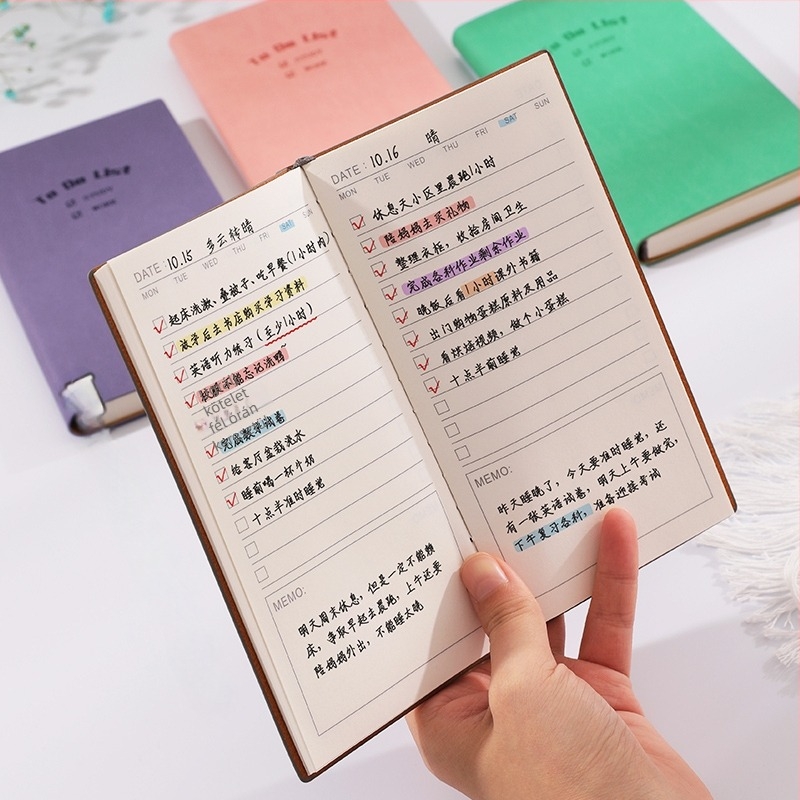 To Do List
To Do List
To Do List
DATE: 10.15 多云转晴
MON TUE WED THU FRI SAT SUN
起床洗漱、叠被子、吃早餐(1小时内)
放学后去书店购买学习资料
英语听力练习(至少1小时)
kötelet
fél órán
完成数学试卷
给客厅盆栽浇水
睡前喝一杯牛奶
十点半准时睡觉
MEMO:
明天周末休息，但是一定不能赖
床，争取早起去晨跑，上午还要
陪妈妈外出，不能睡太晚
DATE: 10.16 晴
MON TUE WED THU FRI SAT SUN
休息天小区里晨跑1小时
陪妈妈去买礼物
整理衣柜，收拾房间卫生
完成各科作业剩余作业
晚饭后看1小时课外书籍
出门购物蛋糕原料及用品
看烘焙视频，做个小蛋糕
十点半前睡觉
MEMO:
昨天睡晚了，今天要准时睡觉，还
有一张英语试卷，明天上午要做完，
下午复习各科，准备迎接考试